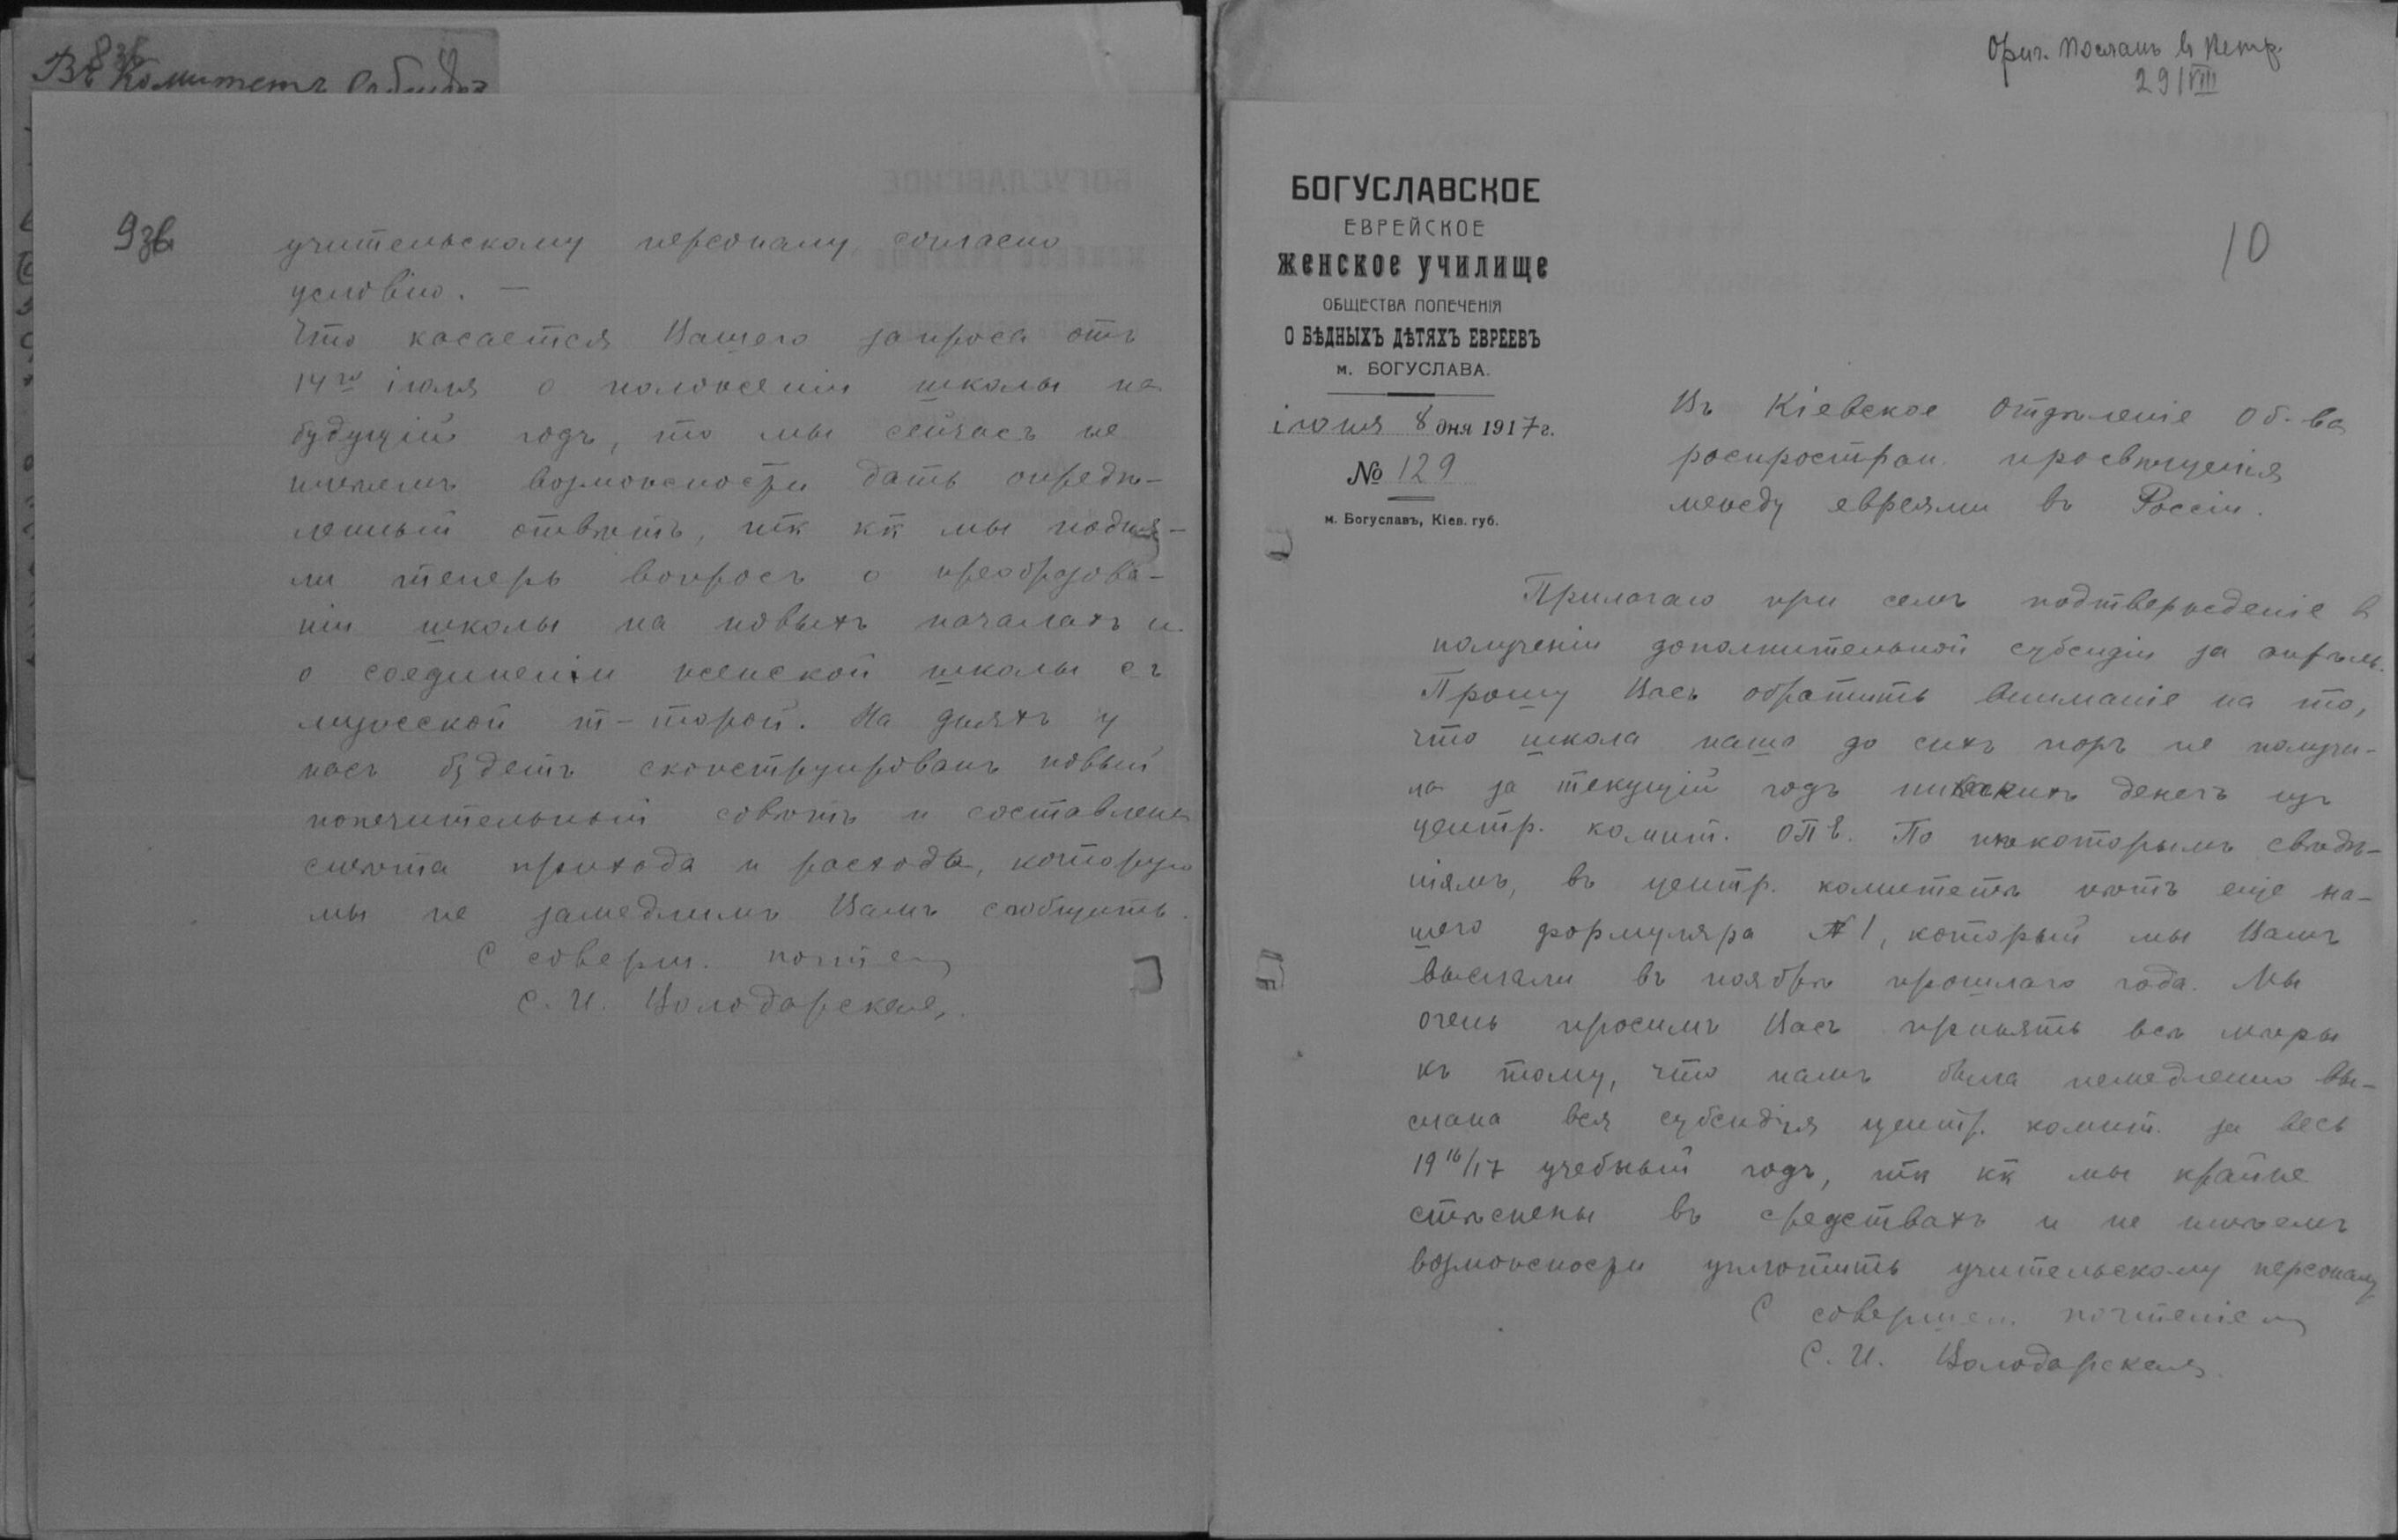 8 зв
Въ Комитетъ
9 зв
учительскому персоналу согласно
условію. —
Что касается Вашего запроса отъ
14го іюля о положеніи школы на
будущій годъ, то мы сейчасъ не
имѣемъ возможности дать опредѣ-
ленный отвѣтъ, тк кк мы подня-
ли теперь вопросъ о преобразова-
ніи школы на новыхъ началахъ и
о соединеніи женской школы съ
мужской т-торой. На дняхъ у
насъ будетъ сконструированъ новый
попечительный совѣтъ и составлена
смѣта прихода и расхода, которую
мы не замедлимъ Вамъ сообщить.
С соверш. почтен
С. И. Володарская.
Ориг. посланъ в Петр.
29/VIII
10
БОГУСЛАВСКОЕ
ЕВРЕЙСКОЕ
ЖЕНСКОЕ УЧИЛИЩЕ
ОБЩЕСТВА ПОПЕЧЕНІЯ
О БѢДНЫХЪ ДѢТЯХЪ ЕВРЕЕВЪ
м. БОГУСЛАВА.
іюня 8 дня 1917 г.
№ 129
м. Богуславъ, Кіев. губ.
Въ Кіевское Отдѣленіе Об-ва
распростран. просвѣщенія
между евреями въ Россіи.
Прилагаю при семъ подтвержденіе в
полученіи дополнительной субсидіи за апрѣль.
Прошу Васъ обратить вниманіе на то,
что школа наша до сихъ поръ не получи-
ла за текущій годъ никакихъ денегъ изъ
центр. комит. ОПЕ. По нѣкоторымъ свѣдѣ-
ніямъ, въ центр. комитетѣ нѣтъ еще на-
шего формуляра № 1, который мы Вамъ
выслали въ ноябрѣ прошлаго года. Мы
очень просимъ Васъ принять всѣ мѣры
къ тому, что намъ была немедленно вы-
слана вся субсидія центр. комит. за весь
1916/17 учебный годъ, тк кк мы крайне
стѣснены въ средствахъ и не имѣемъ
возможности уплатить учительскому персоналу
С совершен. почтеніем
С. И. Володарская